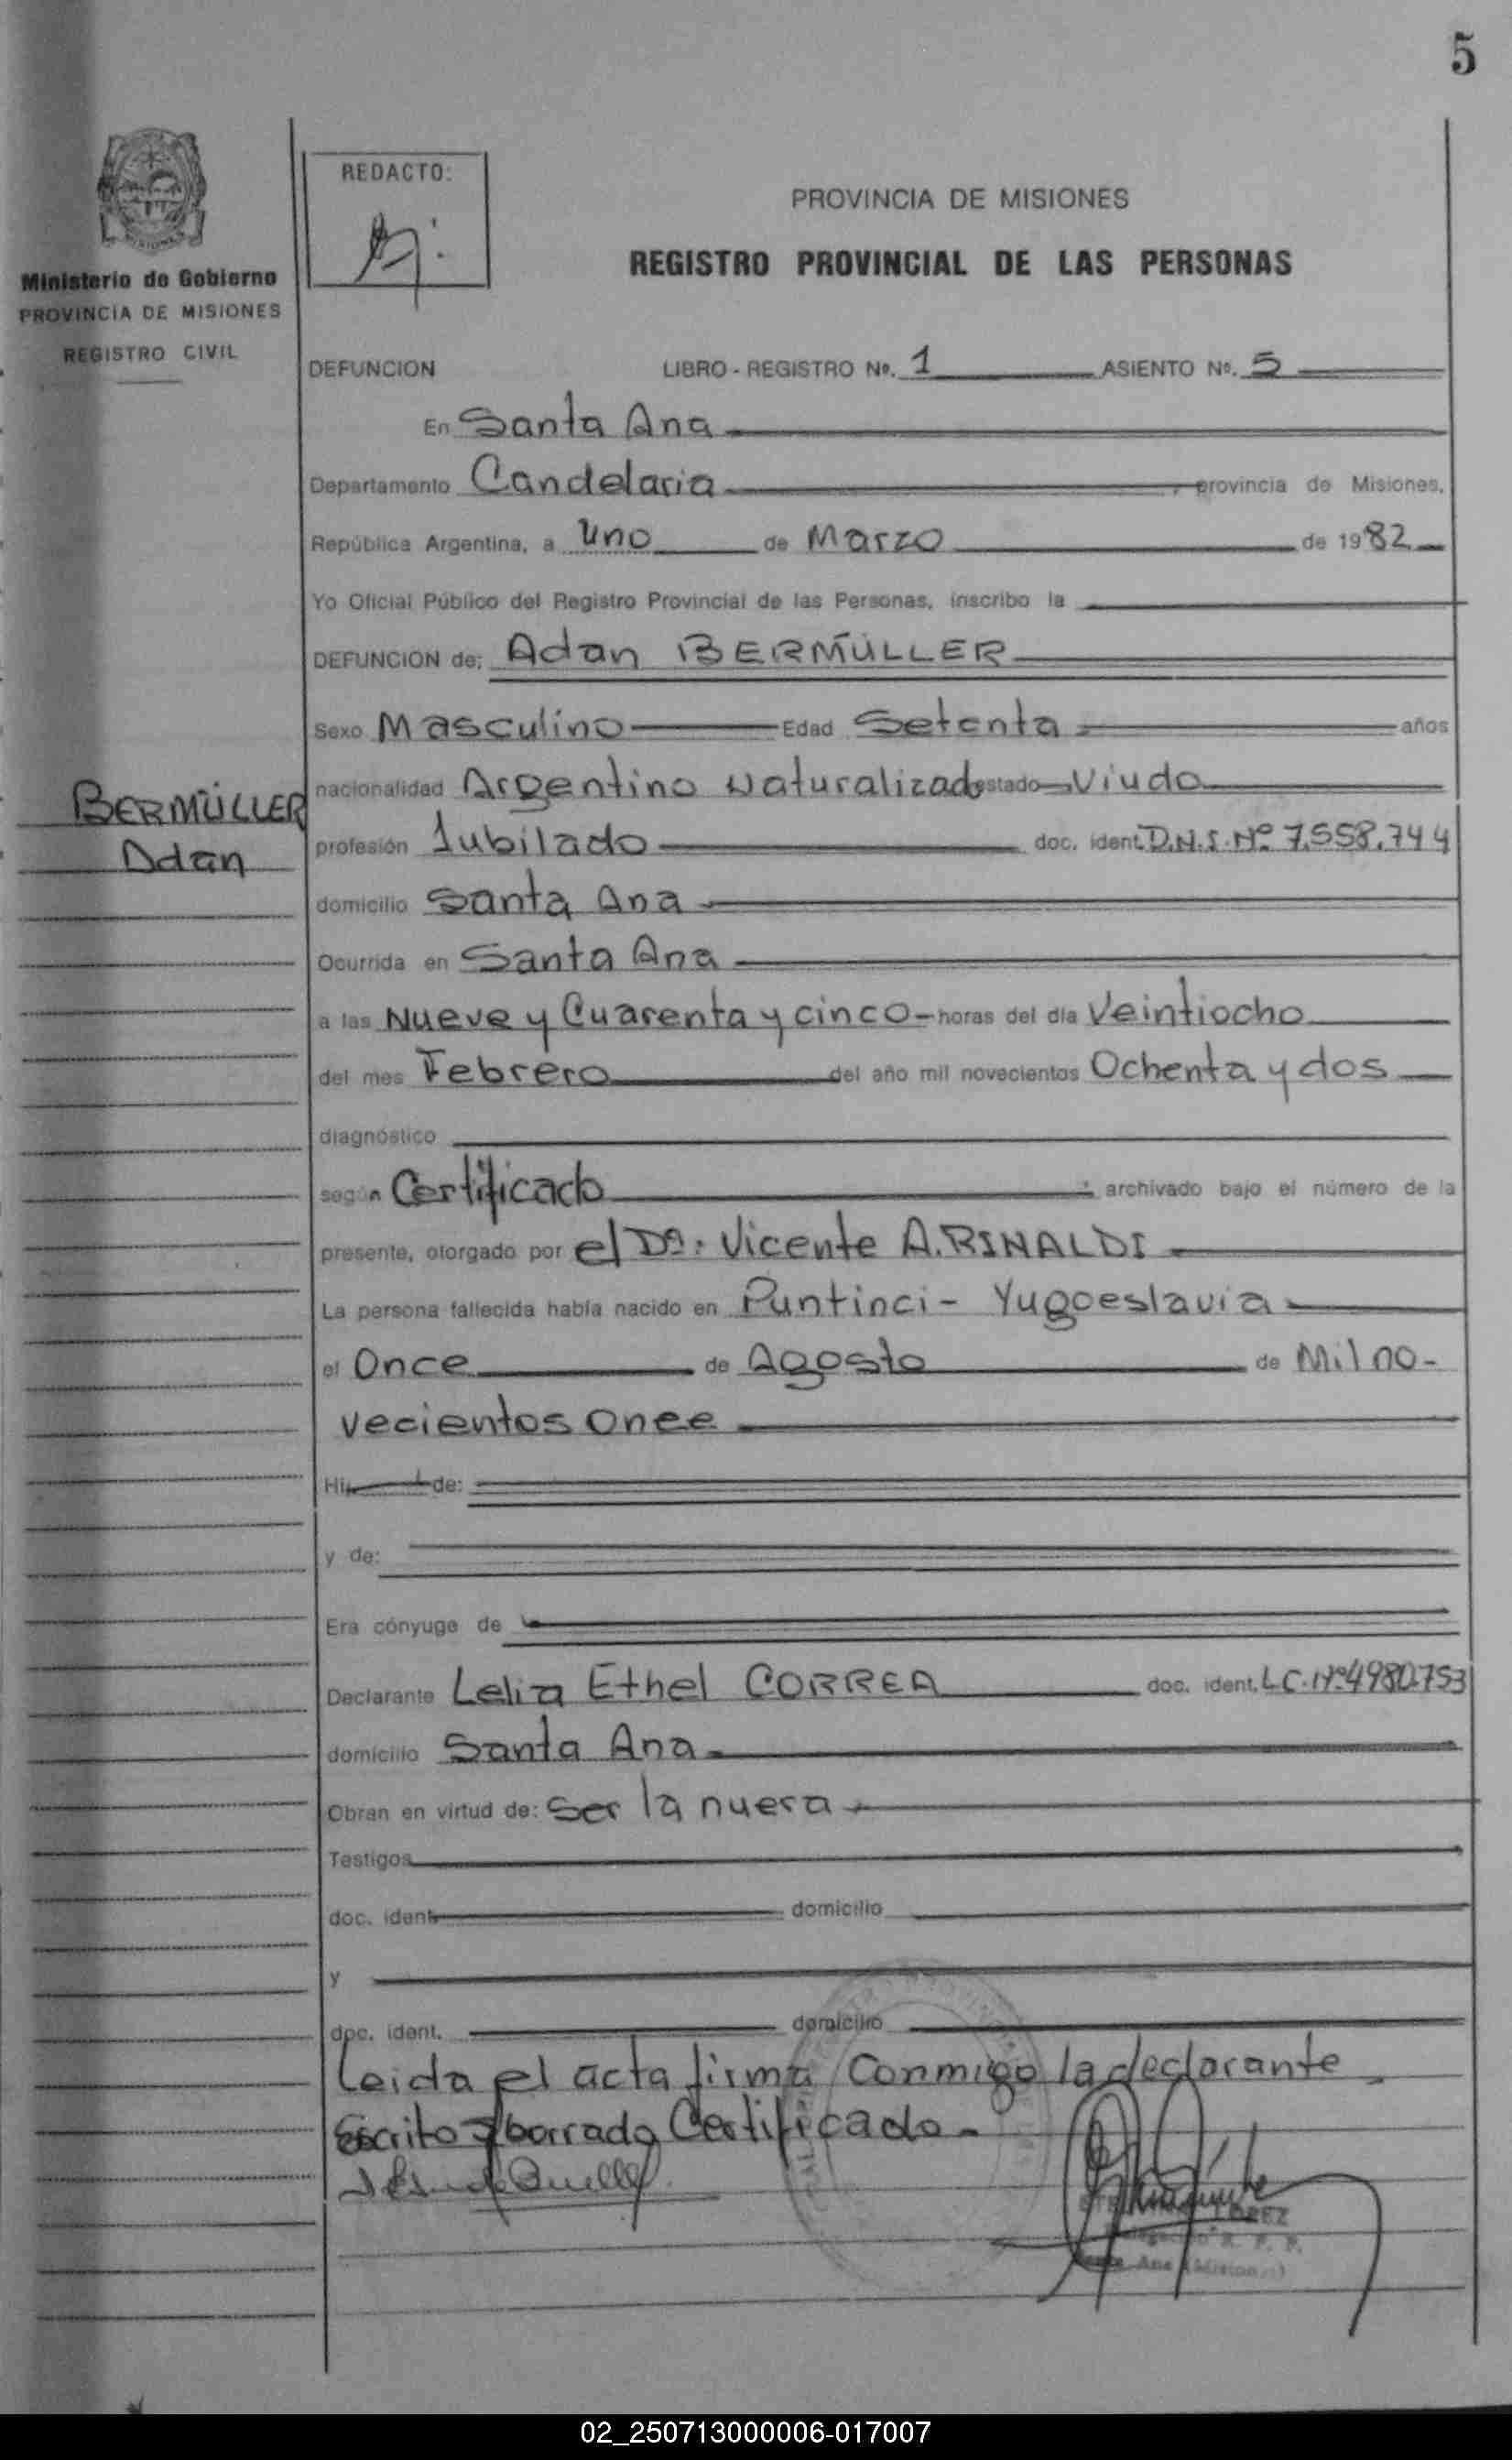 5
REDACTO:
PROVINCIA DE MISIONES
REGISTRO PROVINCIAL DE LAS PERSONAS
Ministerio de Gobierno
PROVINCIA DE MISIONES
REGISTRO CIVIL
DEFUNCION LIBRO - REGISTRO Nº. 1 ASIENTO Nº. 5
En Santa Ana
Departamento Candelaria , provincia de Misiones,
República Argentina, a Uno de Marzo de 1982
Yo Oficial Público del Registro Provincial de las Personas, inscribo la
DEFUNCION de: Adan BERMÜLLER
Sexo Masculino Edad Setenta años
nacionalidad Argentino Naturalizado estado Viudo
BERMÜLLER
Adan
profesión Jubilado doc. ident. D.N.I. Nº 7.558.744
domicilio Santa Ana
Ocurrida en Santa Ana
a las Nueve y Cuarenta y cinco - horas del día Veintiocho
del mes Febrero del año mil novecientos Ochenta y dos
diagnóstico
según Certificado archivado bajo el número de la
presente, otorgado por el Dº: Vicente A. RINALDI
La persona fallecida había nacido en Puntinci - Yugoeslavia
el Once de Agosto de Mil no-
vecientos Once
Hij de:
y de:
Era cónyuge de
Declarante Lelia Ethel CORREA doc. ident. L.C. Nº 4980.753
domicilio Santa Ana
Obran en virtud de: Ser la nuera
Testigos
doc. ident. domicilio
y
doc. ident. domicilio
Leida el acta firma Conmigo la declarante
Escrito s/borrado Certificado.-
LOPEZ
R. P. P.
Santa Ana (Misiones)
02_250713000006-017007